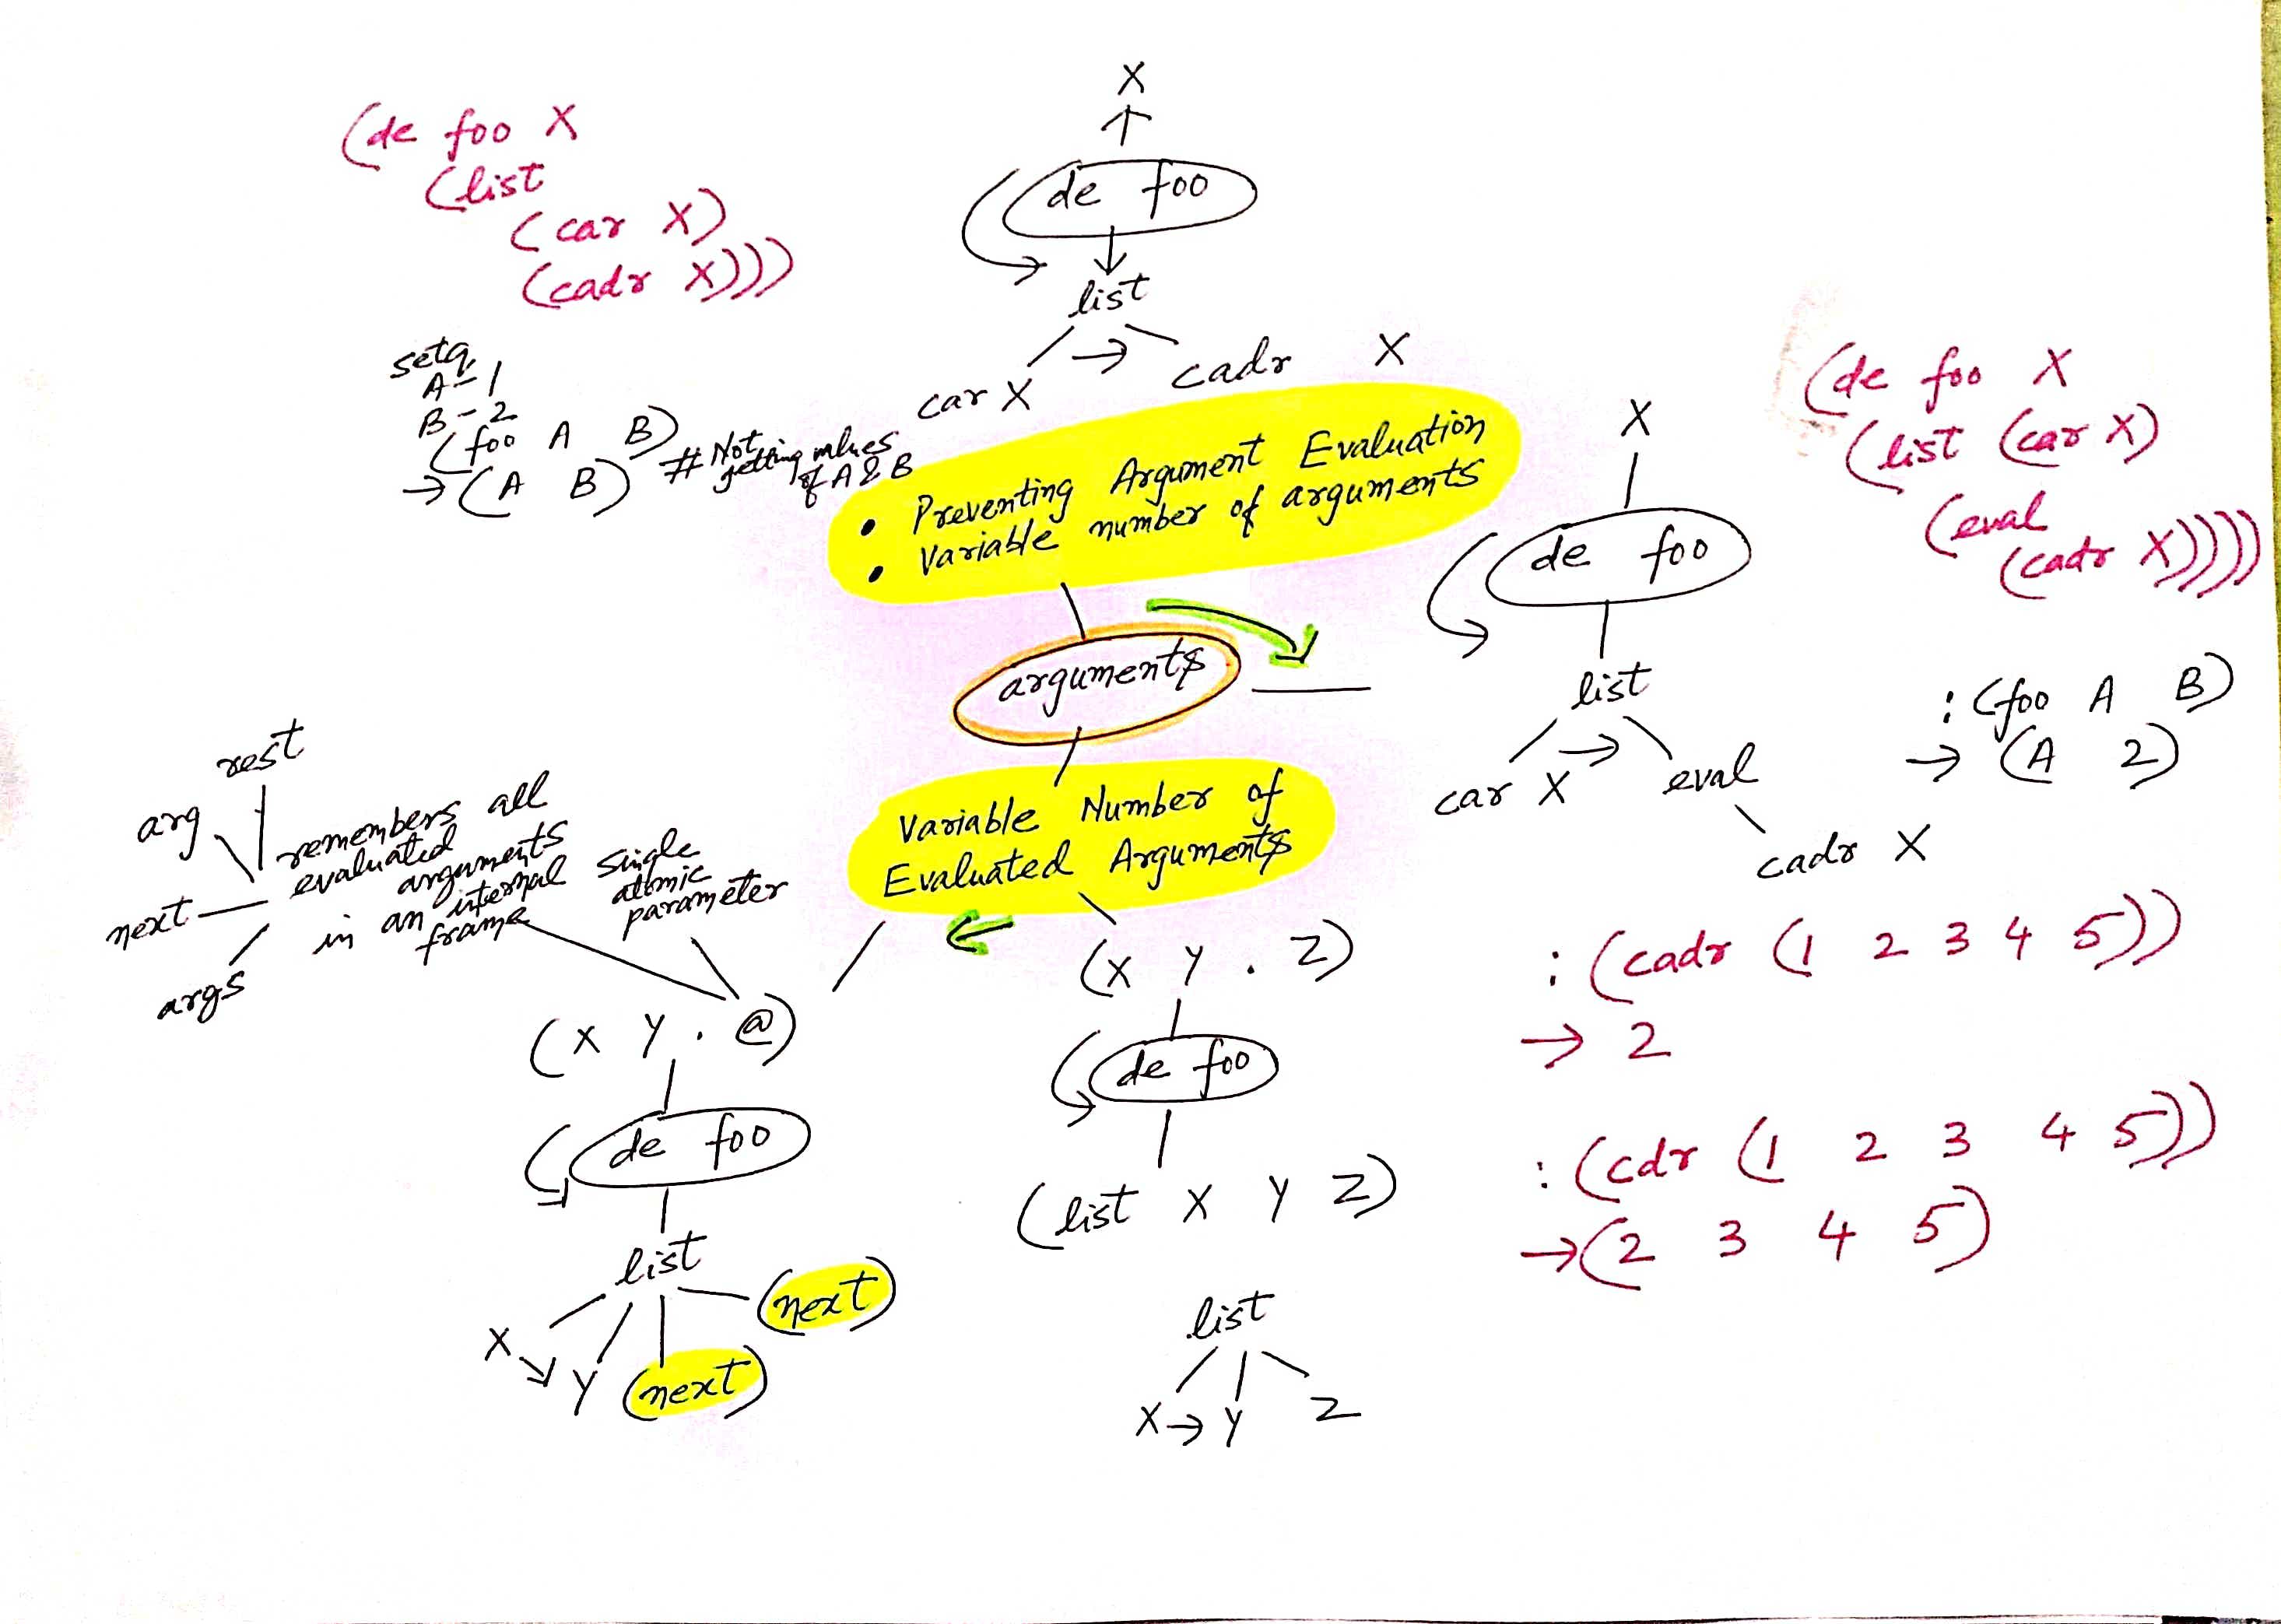 (de foo X
(list
(car X)
(cadr X)))
setq
A - 1
B - 2
(foo A B)
→ (A B)
# Not getting values of A & B
X
↑
de foo
↓
list
→
car X
cadr X
• Preventing Argument Evaluation
• Variable number of arguments
arguments
X
de foo
list
→
car X
eval
cadr X
(de foo X
(list (car X)
(eval
(cadr X))))
: (foo A B)
→ (A 2)
: (cadr (1 2 3 4 5))
→ 2
: (cdr (1 2 3 4 5))
→ (2 3 4 5)
Variable Number of
Evaluated Arguments
(X Y . Z)
de foo
(list X Y Z)
list
X → Y Z
rest
arg
next
args
remembers all
evaluated
arguments
in an internal
frame
single
atomic
parameter
(X Y . @)
de foo
list
X → Y
(next)
(next)